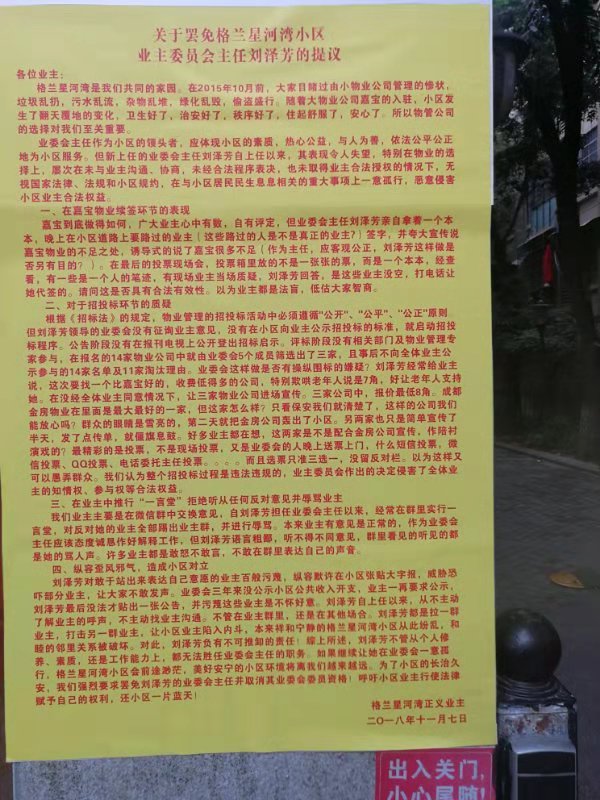 关于罢免格兰星河湾小区
业主委员会主任刘泽芳的提议
各位业主:
格兰星河湾是我们共同的家园。在2015年10月前，大家目睹过由小物业公司管理的惨状，
垃圾乱扔，污水乱流，杂物乱堆，绿化乱毁，偷盗盛行。随着大物业公司嘉宝的入驻，小区发
生了翻天覆地的变化，卫生好了，治安好了，秩序好了，住起舒服了，安心了。所以物管公司
的选择对我们至关重要。
业委会主任作为小区的领头者，应体现小区的素质，热心公益，与人为善，依法公平公正
地为小区服务。但新上任的业委会主任刘泽芳自上任以来，其表现令人失望，特别在物业的选
择上，屡次在未与业主沟通、协商，未经法程序表决，也未取得业主合法授权的情况下，无
视国家法律、法规和小区规约，在与小区居民民生息息相关的重大事项上一意孤行，恶意侵害
小区业主合法权益。
一、在嘉宝物业续签环节的表现
嘉宝到底做得如何，广大业主心中有数，自有评定，但业委会主任刘泽芳亲自拿着一个本
本，晚上在小区道路上要路过的业主（这些路过的人是不是真正的业主？）签字，并夸大宣传说
嘉宝物业的不足之处，诱导式的说了嘉宝这很多不足（作为主任，应客观公正，刘泽芳这样做是
否另有目的？）。在最后的投票现场会，投票箱里放的不是一张张的票，而是一个本本，经查
看，有一些是一个人的笔迹，有现场业主当场质疑，刘泽芳回答，是这些业主没空，打电话让
她代签的。请问这是否具有合法有效性。以为业主都是法盲，低估大家智商。
二、对于招投标环节的质疑
根据《招标法》的规定，物业管理的招投标活动中必须遵循"公开"、"公平"、"公正"原则。
但刘泽芳领导的业委会没有征询业主意见，没有在小区向业主公示招投标的标准，就启动招投
标程序。公告阶段没有在报刊电视上公开登出招标启示。评标阶段没有相关部门及物业管理专
家参与，在报名的14家物业公司中就由业委会5个成员筛选出了三家，且事后不向全体业主公
示参与的14家名单及11家淘汰理由。业委会这样做是否有操纵围标的嫌疑？刘泽芳经常给业主
说，这次要找一个比嘉宝好的，收费低得多的公司，特别欺哄老年人说是7角，好让老年人支持
她。在没经全体业主同意情况下，让三家物业公司进场宣传。三家公司中，报价最低8角。成都
金房物业在里面是最大最好的一家，但这家怎么样？只看保安我们就清楚了，这样的公司我们
能放心吗？群众的眼睛是雪亮的，第二天就把金房公司轰出了小区。另两家也只是简单宣传了
半天，发了点传单，就偃旗息鼓。好多业主都在想，这两家是不是配合金房公司宣传，作陪衬
演戏的？最精彩的是投票，不是现场投票，又是业委会的人晚上送票上门，什么短信投票，微
信投票、QQ投票、电话委托主任投票。。。。而且选票只准三选一，没留反对栏。以为这样又
可以愚弄群众。我们认为整个招投标过程是违法违规的，业主委员会作出的决定侵害了全体业
主的知情权、参与权等合法权益。
三、在业主中推行“一言堂”拒绝听从任何反对意见并辱骂业主
我们业主主要是在微信群中交换意见，自刘泽芳担任业委会主任以来，经常在群里实行一
言堂，对反对她的业主全部踢出业主群，并进行辱骂。本来业主有意见是正常的，作为业委会
主任应该态度诚恳作好解释工作，但刘泽芳语言粗鄙，听不得不同意见，群里看见的听见的都
是她的骂人声。许多业主都是敢怒不敢言，不敢在群里表达自己的声音。
四、纵容歪风邪气，造成小区对立
刘泽芳对敢于站出来表达自己意愿的业主百般污蔑，纵容默许在小区张贴大字报，威胁恐
吓部分业主，让大家不敢发声。业委会三年来没公示小区公共收入开支，业主一再要求公示，
刘泽芳最后没法才贴出一张公告，并污蔑这些业主是不怀好意。刘泽芳自上任以来，从不主动
了解业主的呼声，不主动找业主沟通。不管在业主群里，还是在其他场合。刘泽芳都是拉一群
业主，打击另一群业主，让小区业主陷入内斗，本来祥和宁静的格兰星河湾小区从此纷乱，和
睦的邻里关系被破坏。对此，刘泽芳负有不可推卸的责任！综上所述，刘泽芳不管从个人修
养、素质，还是工作能力上，都无法胜任业委会主任的职务。如果继续让她在业委会一意孤
行，格兰星河湾小区会前途渺茫，美好安宁的小区环境将离我们越来越远。为了小区的长治久
安，我们强烈要求罢免刘泽芳的业委会主任并取消其业委会委员资格！呼吁小区业主行使法律
赋予自己的权利，还小区一片蓝天！
格兰星河湾正义业主
二〇一八年十一月七日
出入关门，
小心尾随!